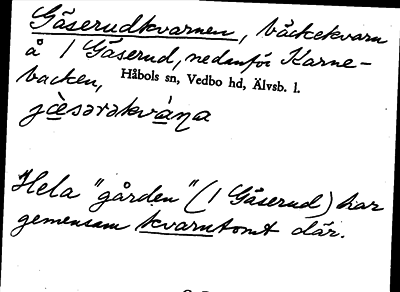 Gåserudkvarnen, bäckekvarn
å 1 Gåserud, nedanför Karne-
backen,
Håbols sn, Vedbo hd, Älvsb. l.
Hela "gården" (1 Gåserud) har
gemensam kvarntomt där.